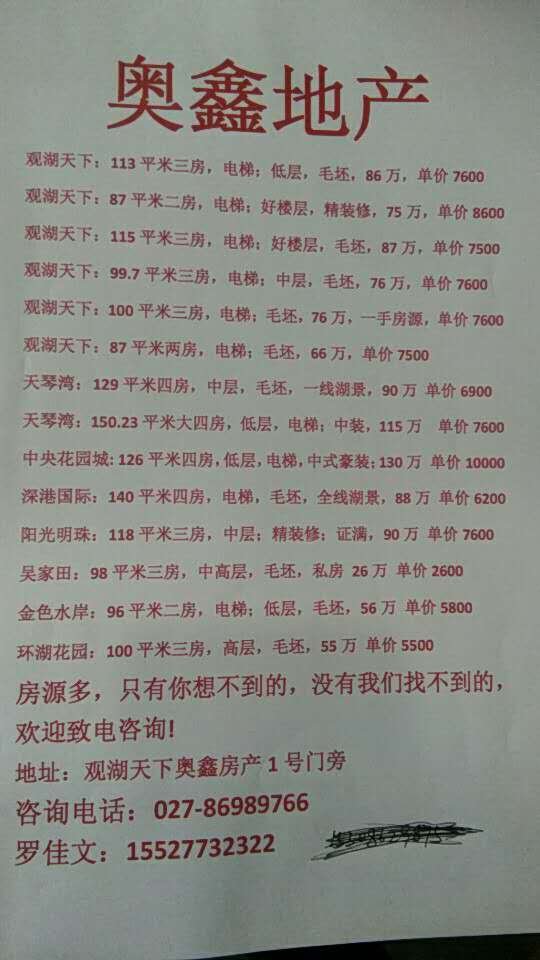 奥鑫地产
观湖天下：113 平米三房，电梯；低层，毛坯，86 万，单价 7600
观湖天下：87 平米二房，电梯；好楼层，精装修，75 万，单价 8600
观湖天下：115 平米三房，电梯；好楼层，毛坯，87 万，单价 7500
观湖天下：99.7 平米三房，电梯；中层，毛坯，76 万，单价 7600
观湖天下：100 平米三房，电梯；毛坯，76 万，一手房源，单价 7600
观湖天下：87 平米两房，电梯；毛坯，66 万，单价 7500
天琴湾：129 平米四房，中层，毛坯，一线湖景，90 万 单价 6900
天琴湾：150.23 平米大四房，低层，电梯；中装，115 万 单价 7600
中央花园城: 126 平米四房,低层,电梯,中式豪装；130 万 单价 10000
深港国际：140 平米四房，电梯，毛坯，全线湖景，88 万 单价 6200
阳光明珠：118 平米三房，中层；精装修；证满，90 万 单价 7600
吴家田：98 平米三房，中高层，毛坯，私房 26 万 单价 2600
金色水岸：96 平米二房，电梯；低层，毛坯，56 万 单价 5800
环湖花园：100 平米三房，高层，毛坯，55 万 单价 5500
房源多，只有你想不到的，没有我们找不到的，
欢迎致电咨询!
地址：观湖天下奥鑫房产 1 号门旁
咨询电话：027-86989766
罗佳文：15527732322